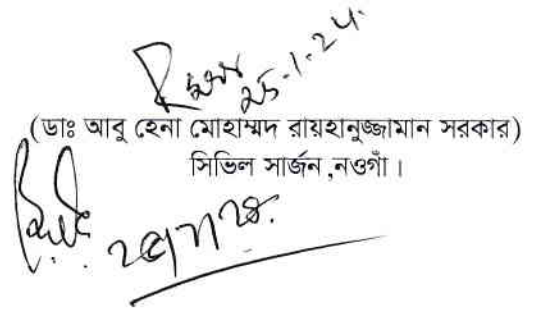 25.1.24.
(ডাঃ আবু হেনা মোহাম্মদ রায়হানুজ্জামান সরকার)
সিভিল সার্জন ,নওগাঁ।